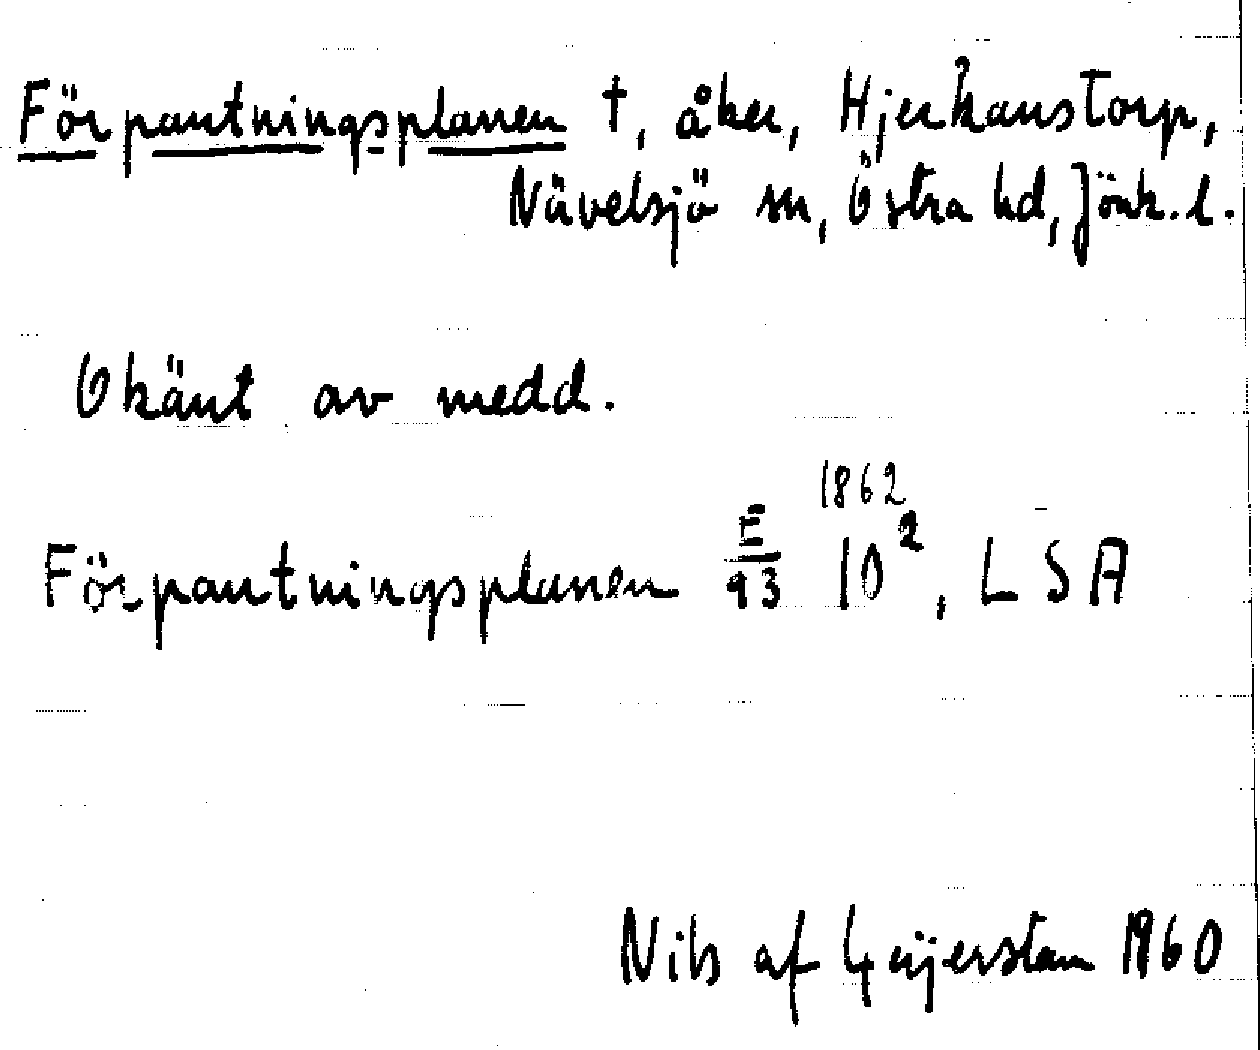 Förpantningsplanen †, åker, Hjerkanstorp,
Nävelsjö sn, Östra hd, Jönk. l.
Okänt av medd.
Förpantningsplanen E/93 1862 10², LSA
Nils af Geijerstam 1960